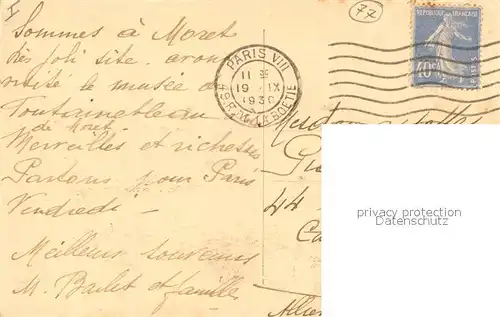 I
Sommes à Moret
très joli site. avons
visité le musée de
Fontainebleau
de Moret
Merveilles et richesses
Partons pour Paris
Vendredi -
Meilleurs souvenirs
M. et famille
77
PARIS VIII
11 H
19 - IX
1930
LA BOETIE
REPUBLIQUE FRANÇAISE
40c
POSTES
44
privacy protection
Datenschutz